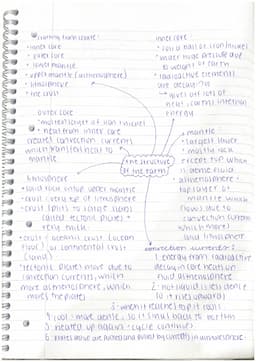 starting from centre:
• inner core
• outer core
• lower mantle
• upper mantle (asthenosphere)
• lithosphere
• the crust
inner core
• solid ball of iron/nickel
• under huge pressure due
to weight of earth
• radioactive elements
are decaying
↳ gives off lots of
heat, earth's internal
energy
outer core
• molten layer of iron/nickel
• heat from inner core
creates convection currents
which transfer heat to
mantle
the structure
of the earth
• mantle
• largest layer
• mostly rock
except top which
is dense fluid
• asthenosphere -
top layer of
mantle which
flows due to
convection currents
which moves
land lithosphere
lithosphere
• solid rock on top upper mantle
• crust: very top of lithosphere
• crust splits to large slabs
called tectonic plates
very thick
• crust: oceanic crust (ocean
floor) or continental crust
(land)
• tectonic plates move due to
convection currents, which
move asthenosphere, which
moves the plates
convection currents:
1 energy from radioactive
decay in core heats
fluid asthenosphere
2 hot liquid is less dense
so it rises upwards
3 when it reaches top it cools
4 cool = more dense, so it sinks back to bottom
5 heated up again = cycle continues
6 plates above are pushed and pulled by currents in asthenosphere